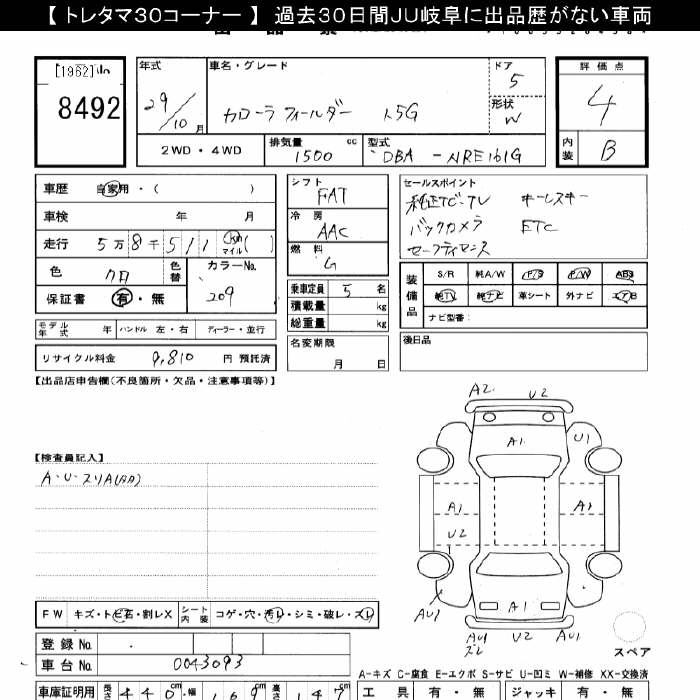 【 トレタマ30コーナー 】 過去30日間JU岐阜に出品歴がない車両
[1962]
8492
年式 29/10月
車名・グレード カローラ フィールダー 1.5G
ドア 5
形状 W
評価点 4
内装 B
2WD・4WD
排気量 1500 cc
型式 DBA - NRE161G
車歴 自家用・( )
車検 年 月
走行 5万8千511 km マイル ( )
色 クロ 色替 カラーNo. 209
保証書 有・無
シフト FAT
冷房 AAC
燃料 G
乗車定員 5 名
積載量 kg
総重量 kg
セールスポイント
純正TV キーレスキー
バックカメラ ETC
セーフティセンス
装備品 S/R 純A/W P/S P/W ABS
純TV 純ナビ 革シート 外ナビ エアB
ナビ型番:
モデル年式 年 ハンドル 左・右 ディーラー・並行
リサイクル料金 9,810 円 預託済
名変期限 月 日
後日品
【出品店申告欄(不良箇所・欠品・注意事項等)】
A2 U2
A1 U1
【検査員記入】
A・U・スリA
A1 A1
U2
AU1 A1
AU1 U2 AU1
ズレ
スペア
FW キズ・トビ石・割レX シート内装 コゲ・穴・汚レ・シミ・破レ・スレ
登録No.
車台No. 0043093
A-キズ C-腐食 E-エクボ S-サビ U-凹ミ W-補修 XX-交換済
車庫証明用 長さ 440 幅 169 高さ 147
工具 有・無 ジャッキ 有・無